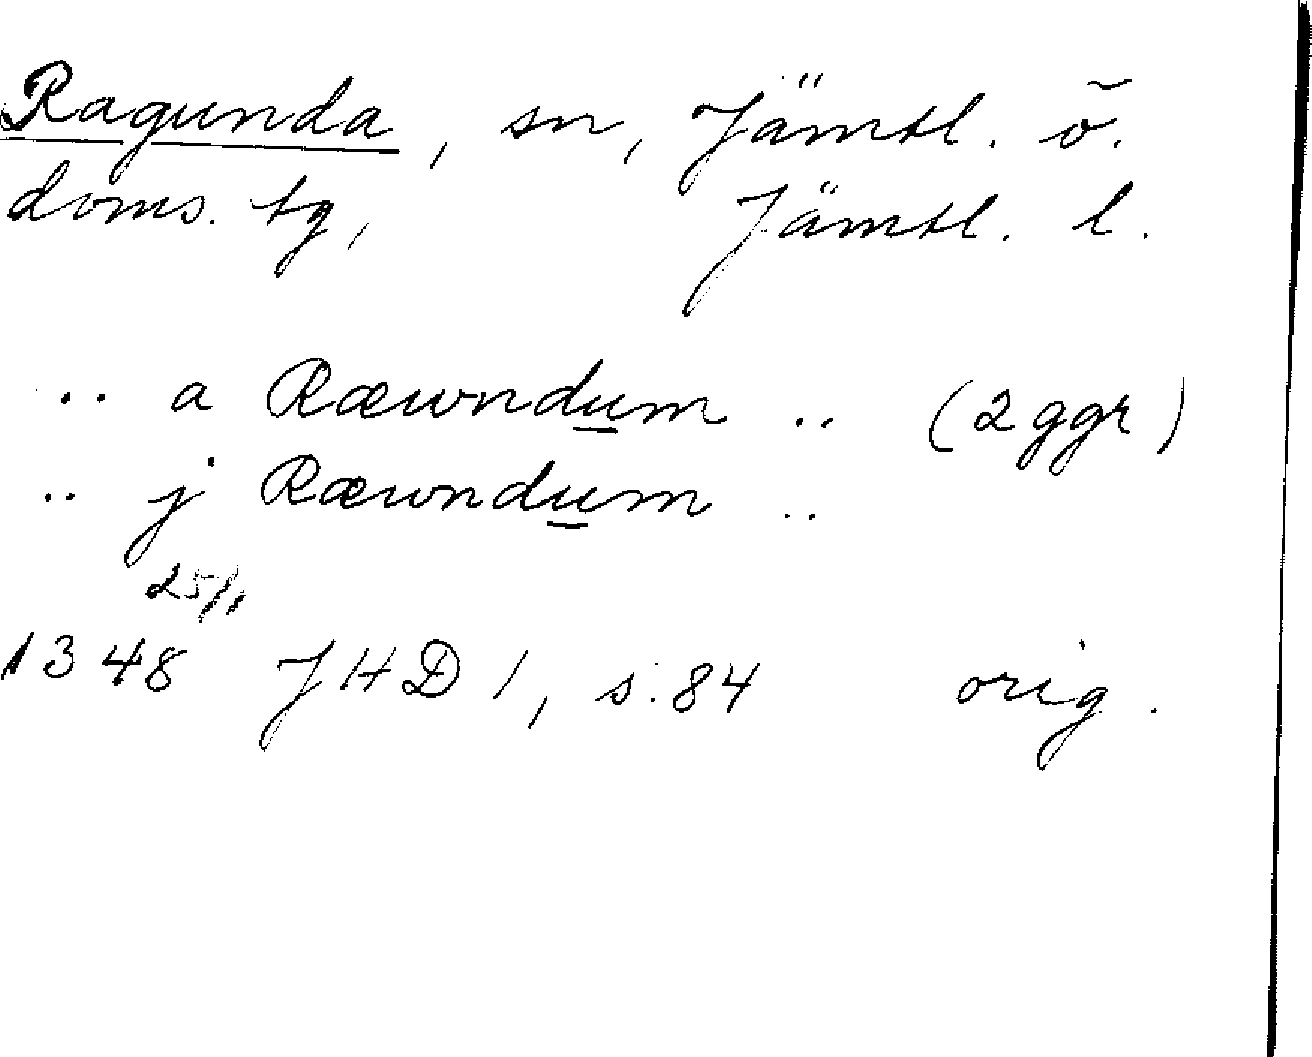 Ragunda, sn, Jämtl. ö.
doms. tg, Jämtl. l.
.. a Ræwndum .. (2 ggr)
.. j Ræwndum ..
25/1
1348 JHD 1, s. 84 orig.